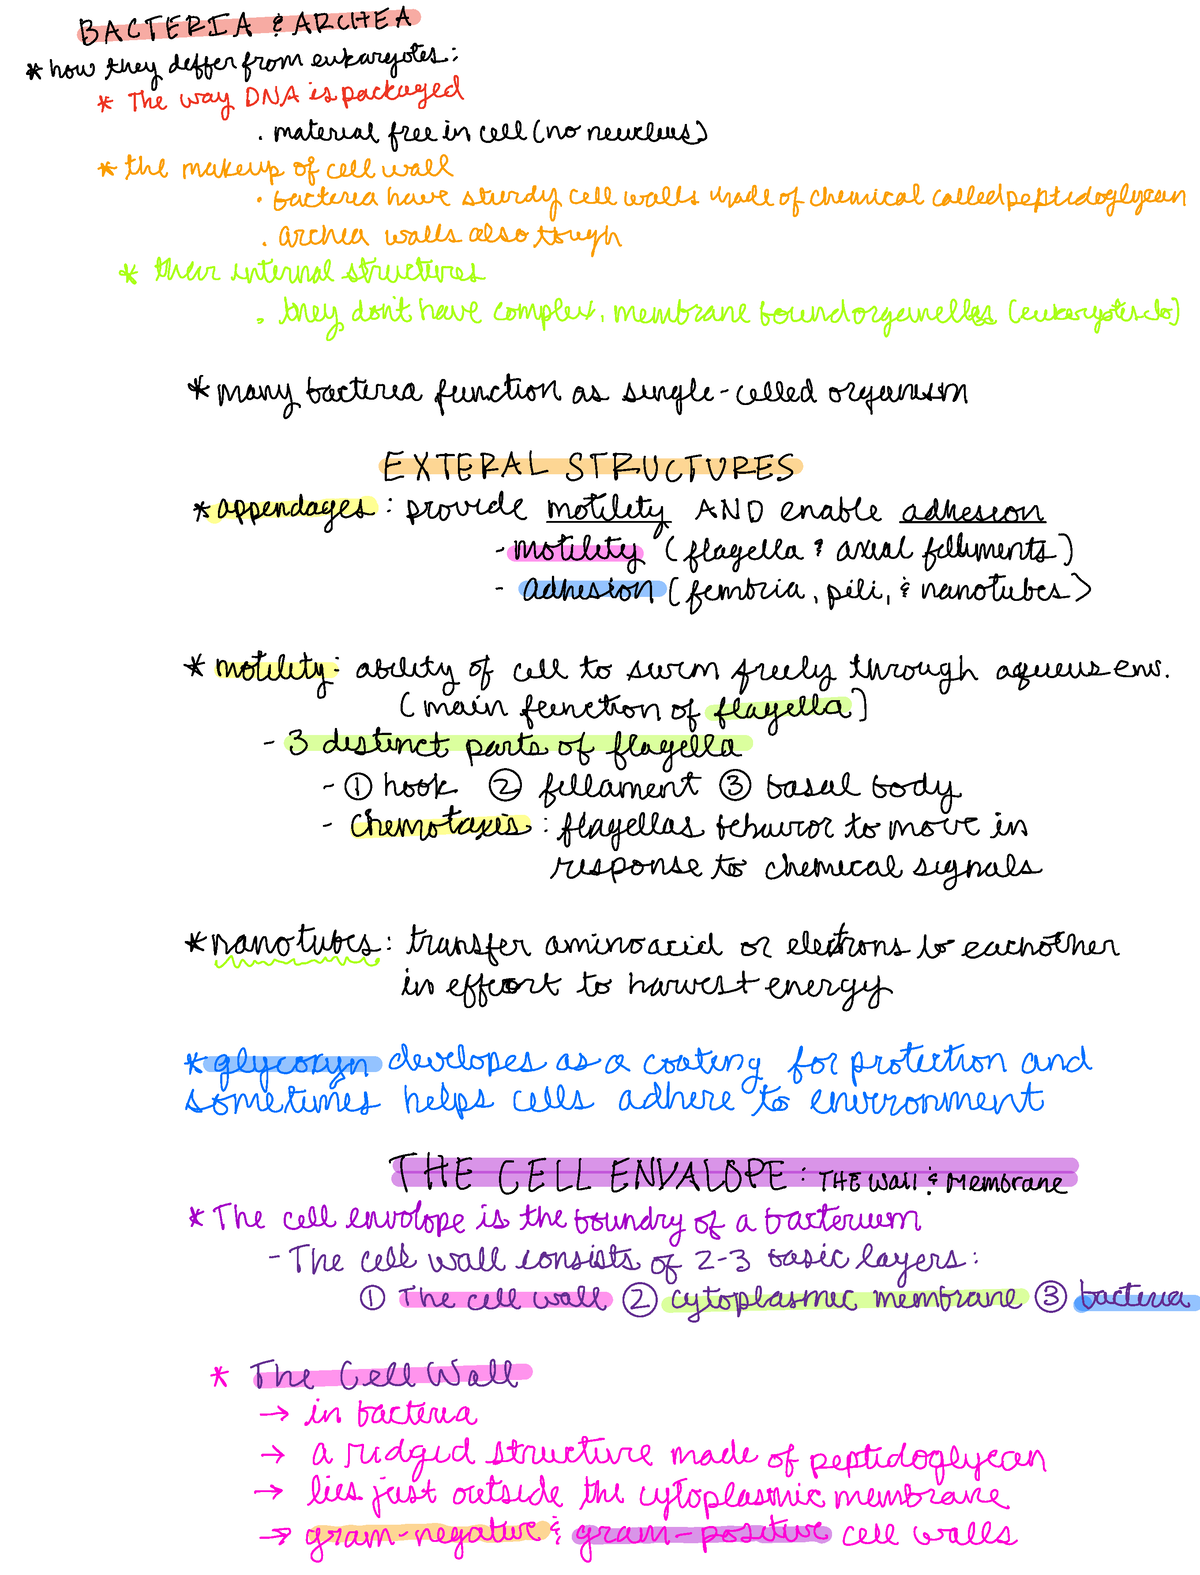 BACTERIA & ARCHEA
* how they differ from eukaryotes:
* The way DNA is packaged
. material free in cell (no neucleus)
* the makeup of cell wall
. bacteria have sturdy cell walls made of chemical called peptidoglycan
. archea walls also tough
* their internal structures
. they don't have complex, membrane bound organelles (eukaryotes do)
* many bacteria function as single-celled organism
EXTERAL STRUCTURES
* appendages: provide motility AND enable adhesion
- motility (flagella & axial filliments)
- adhesion (fembria, pili, & nanotubes)
* motility: ability of cell to swim freely through aqueus env.
(main function of flagella)
- 3 distinct parts of flagella
- ① hook ② fillament ③ basal body
- chemotaxis: flagellas behavior to move in
response to chemical signals
* nanotubes: transfer amino acid or electrons to eachother
in effort to harvest energy
* glycoxyn developes as a coating for protection and
sometimes helps cells adhere to environment
THE CELL ENVALOPE: THE Wall & Membrane
* The cell envolope is the boundry of a bacterium
- The cell wall consists of 2-3 basic layers:
① The cell wall ② cytoplasmic membrane ③ bacteria
* The Cell Wall
→ in bacteria
→ a ridged structure made of peptidoglycan
→ lies just outside the cytoplasmic membrane
→ gram-negative & gram-positive cell walls